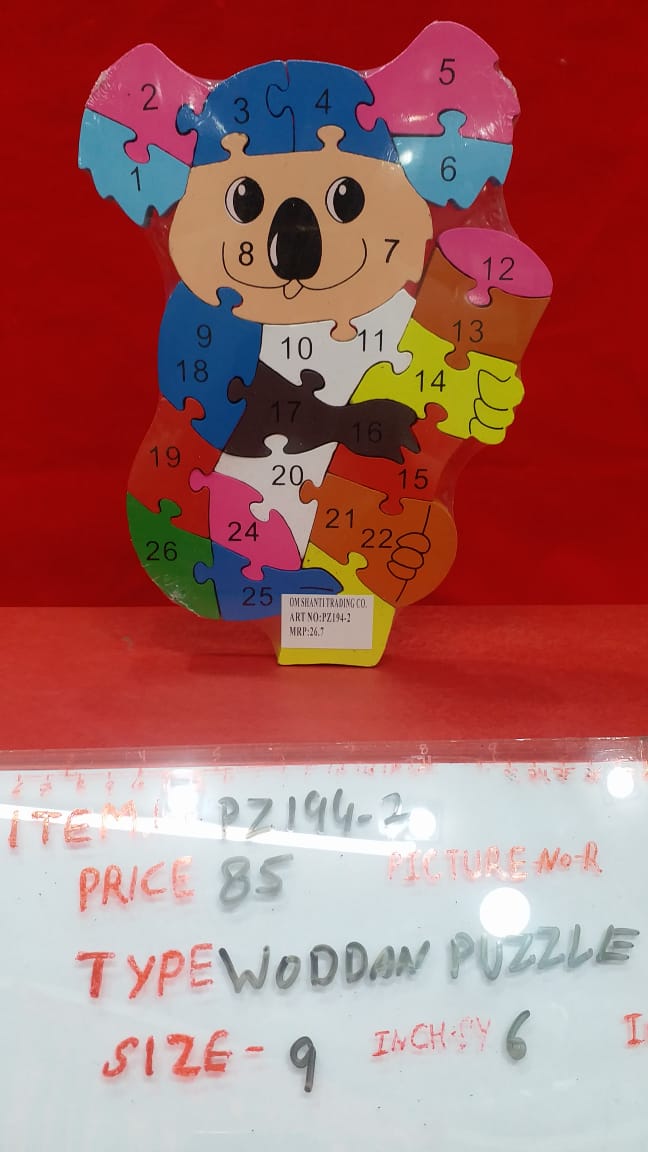 2
3
4
5
1
6
8
7
12
9
10
11
13
18
14
17
16
19
20
15
24
21
22
26
25
OM SHANTI TRADING CO.
ART NO:PZ194-2
MRP:26.7
ITEM PZ194-2
PRICE 85 PICTURE NO-R
TYPE WODDAN PUZZLE
SIZE- 9 INCH-BY 6